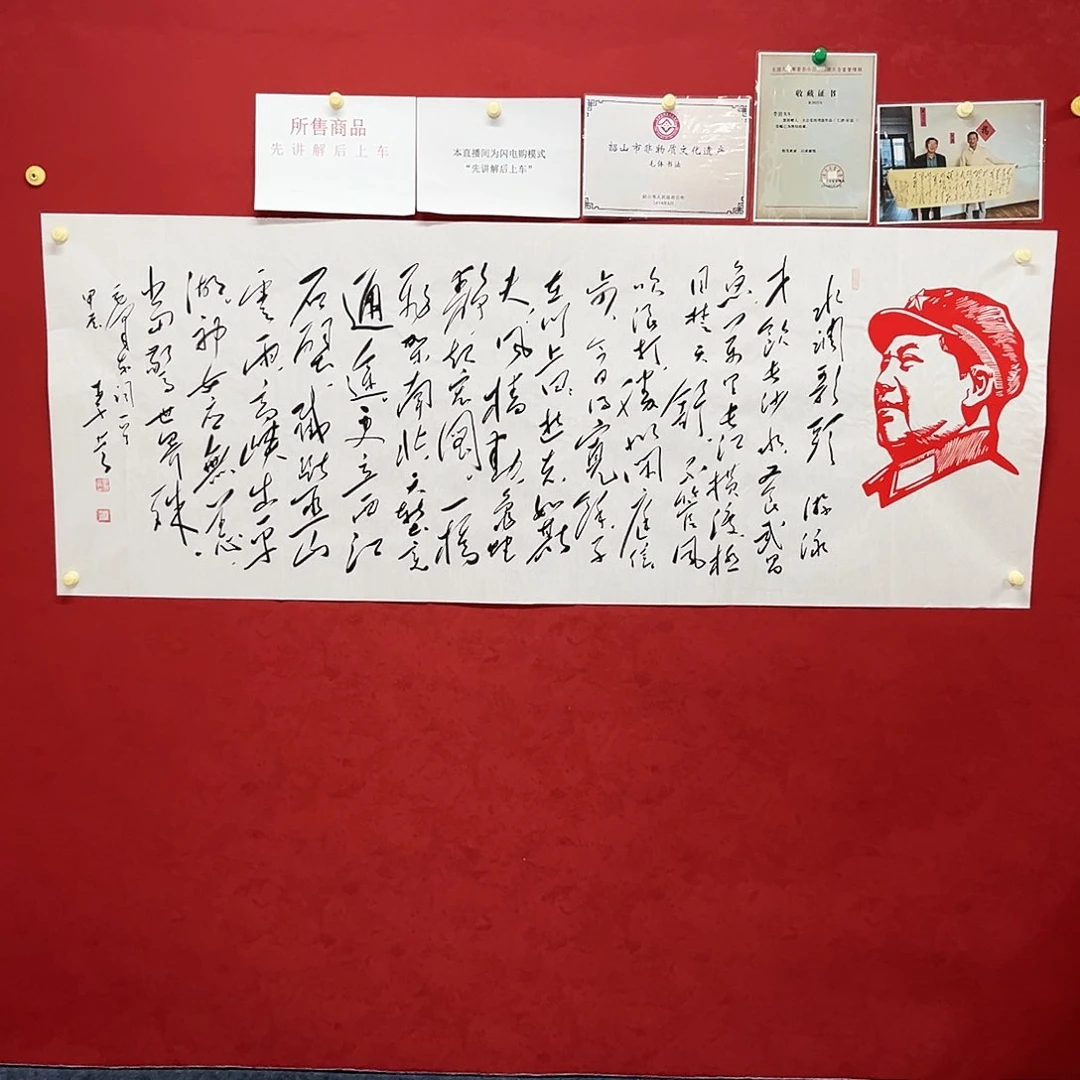 所售商品
先讲解后上车
本直播间为闪电购模式
“先讲解后上车”
韶山市非物质文化遗产
毛体书法
收藏证书
水調歌頭 游泳
才飲长沙水又食武昌
魚萬里长江横渡极
目楚天舒不管风
吹浪打勝似闲庭信
步今日得寬餘子
在川上曰逝者如斯
夫风樯動龟蛇
靜起宏圖一橋
飛架南北天堑变
通途更立西江
石壁截断巫山
雲雨高峡出平
湖神女应無恙
当驚世界殊
毛澤东词一首
甲辰